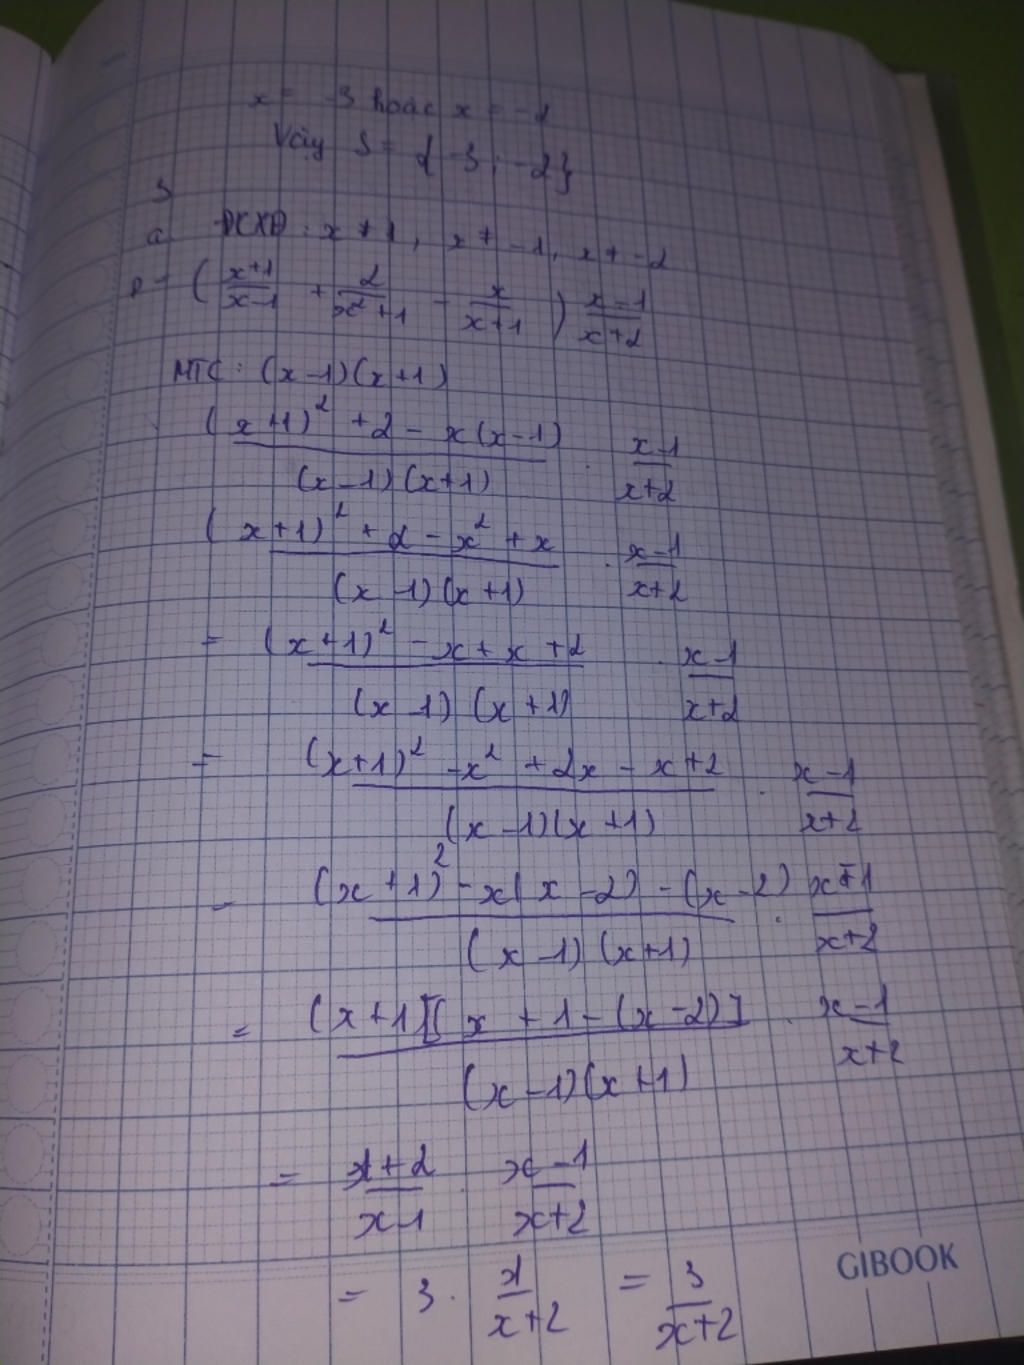 x = -3 hoặc x = -2
Vậy S = {-3; -2}
3
a ĐKXĐ: x ≠ 1, x ≠ -1, x ≠ -2
P = ( (x+1)/(x-1) + 2/(x²+1) - x/(x+1) ) (x-1)/(x+2)
MTC: (x-1)(x+1)
((x+1)² + 2 - x(x-1))/((x-1)(x+1)) . (x-1)/(x+2)
((x+1)² + 2 - x² + x)/((x-1)(x+1)) . (x-1)/(x+2)
= ((x+1)² - x + x + 2)/((x-1)(x+1)) . (x-1)/(x+2)
= ((x+1)² - x² + 2x - x + 2)/((x-1)(x+1)) . (x-1)/(x+2)
= ((x+1)² - x(x-2) - (x-2))/((x-1)(x+1)) . (x-1)/(x+2)
= ((x+1)[x+1-(x-2)])/((x-1)(x+1)) . (x-1)/(x+2)
= (x+2)/(x-1) . (x-1)/(x+2)
= 3 . 1/(x+2) = 3/(x+2)
GIBOOK